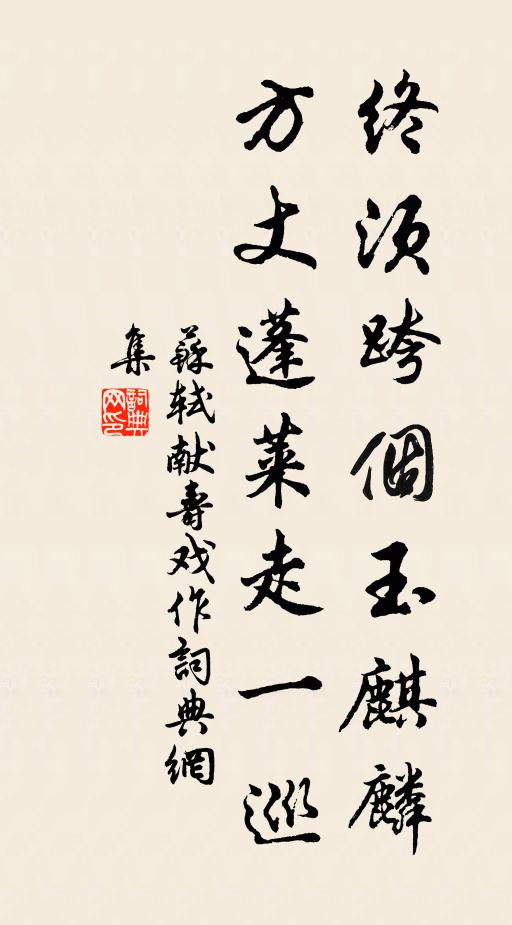 终须跨個玉麒麟
方丈蓬莱走一巡
蘇轼献壽戏作詞典網
集
詞典网印